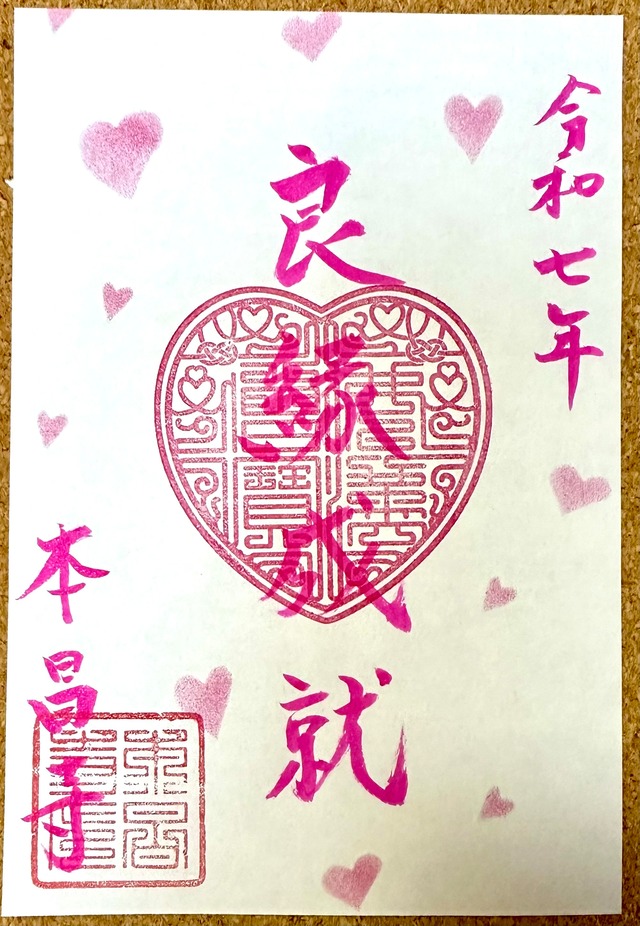 令和七年
良縁成就
本昌寺